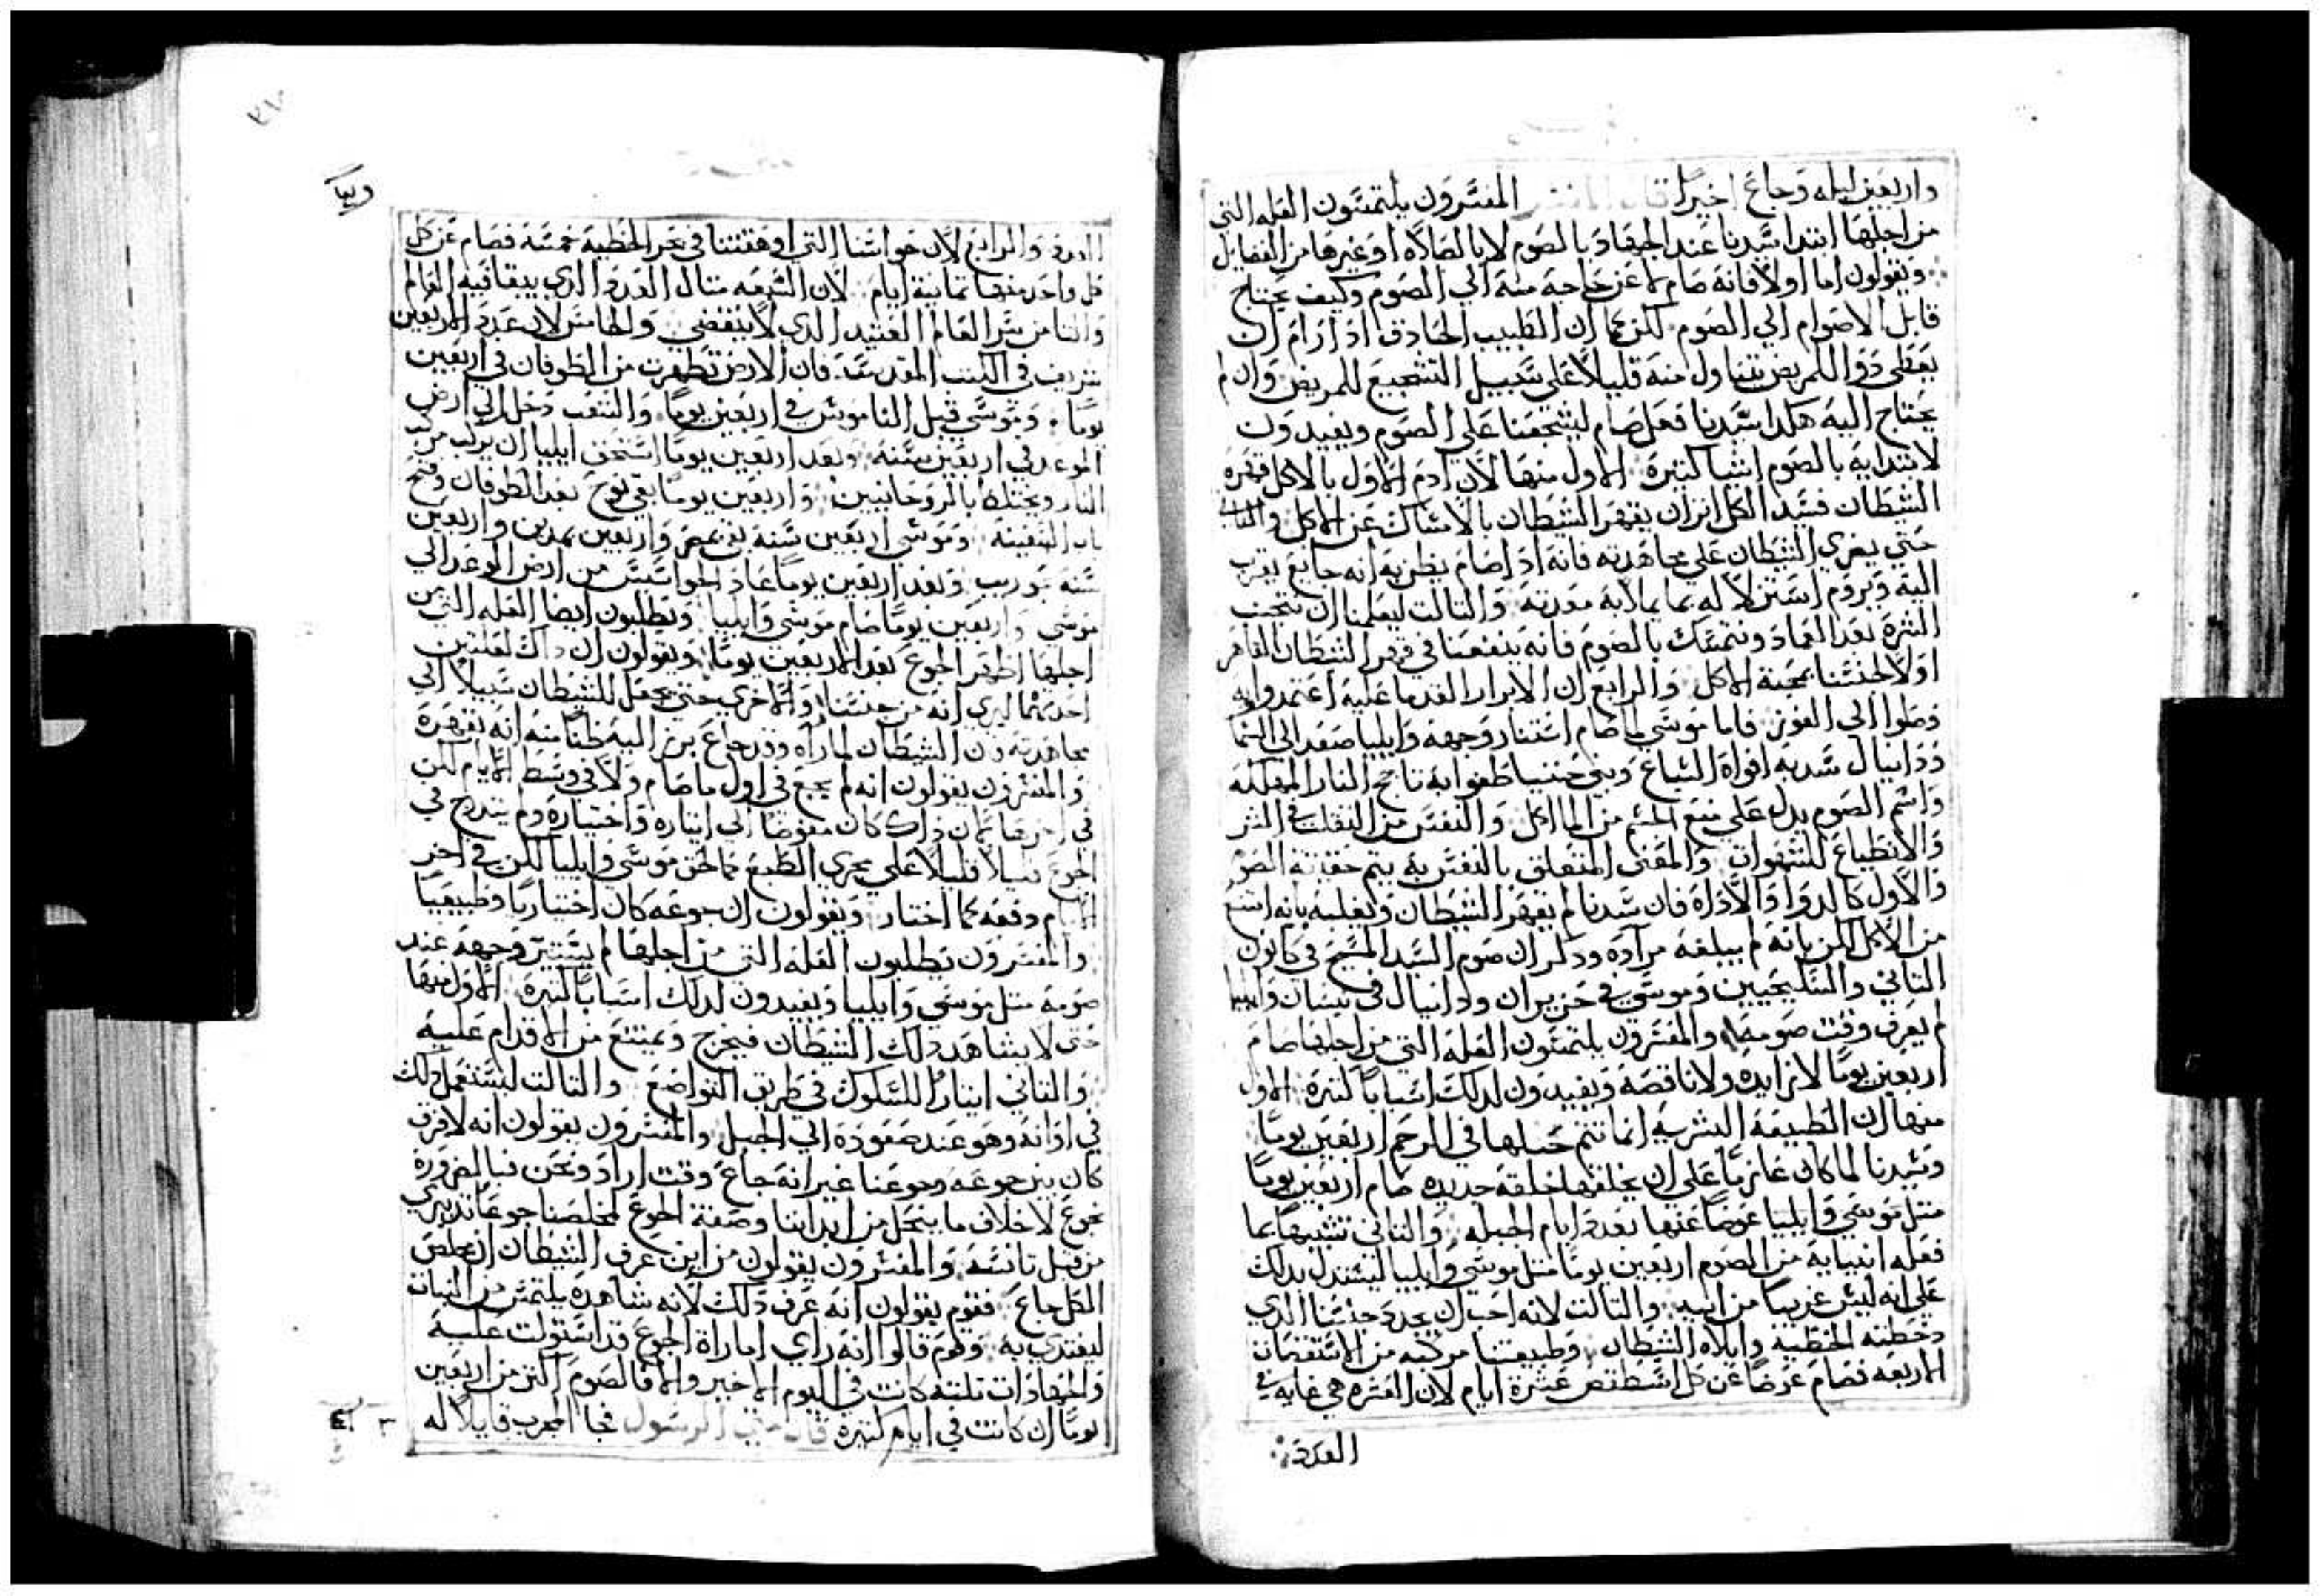 واربعين ليله وجاع اخيرًا قال المفسر المفسرون يلتمسون العله التي
من اجلها ابتدا سيدنا عند الجهاد بالصوم لا بالصلاه او غيرها من الفضايل
ويقولون اما اولا فانه صام لا عن حاجة منه الي الصوم وكيف يحتاج
قابل الاصوام الي الصوم لكن كما ان الطبيب الحاذق اذا رام ان
يعطي دوا للمريض يتناول منه قليلا علي سبيل التشجيع للمريض وان لم
يحتاج اليه هكذا سيدنا فعل صام ليشجعنا علي الصوم ويفيدون
لابتدايه بالصوم اشيا كثيرة الاول منها لان ادم الاول بالاكل قهره
الشيطان فسيد الكل اثر ان يقهر الشيطان بالامساك عن الاكل والثاني
حتي يغري الشيطان علي مجاهدته فانه اذا صام يظن به انه جايع يقرب
اليه ويروم استزلاله بما يملا به معدته والثالث ليعلمنا ان نتجنب
الشره بعد العماد ونتمسك بالصوم فانه ينفعنا في قهر الشيطان القاهر
اولا لجنسنا بمحبة الاكل والرابع ان الابرار القدما عليه اعتمدوا وبه
وصلوا الي الفوز فاما موسي لما صام استنار وجهه وايليا صعد الي السما
ودانيال سد به افواه السباع وبني حننيا طفوا به تاجج النار المهلكه
واسم الصوم يدل علي منع الجسم من الماكل والنفس من التقلب في الشر
والانطباع للشهوات والمعني المتعلق بالنفس به يتم حقيقة الصوم
والاول كالدوا والاداه فان سيدنا لم يقهر الشيطان ويغلبه بانه امتنع
من الاكل لكن بانه لم يبلغه مراده وذلك ان صوم السيد المسيح في كانون
الثاني والسليحيين وموسي في حزيران ودانيال في نيسان وايليا
لم يعرف وقت صومه والمفسرون يلتمسون العله التي من اجلها صام
اربعين يومًا لا زايده ولا ناقصة ويفيدون لذلك اسبابا كثيرة الاول
منها ان الطبيعة البشريه انما تتم خبلها في الرحم اربعين يومًا
وسيدنا لما كان عازمًا علي ان يخلقها خلقه جديده صام اربعين يومًا
مثل موسي وايليا عوضا عنها بعدد ايام الجبله والثاني تشبيها بما
فعله انبيايه من الصوم اربعين يومًا مثل موسي وايليا ليستدل بذلك
علي انه ليس غريبا من ابيه والثالث لانه احب ان يجدد جنسنا الذي
وخطته الخطية وابلاه الشيطان وطبيعتنا مركبه من الاستقصات
الاربعه فصام عوضًا عن كل اسطقص عشرة ايام لان العشره هي غاية في
العدد
٣٧
والرابع لان حواسنا التي اوهقتنا في بحر الخطية خمسة فصام عن كل
كل واحد منها ثمانية ايام لان السبعه مثال العدد الذي يبقا فيه العالم
والثامن سر العالم العتيد الذي لا ينقضي والخامس لان عدد الاربعين
شريف في الكتب المقدسة فان الارض تطهرت من الطوفان في اربعين
يومًا وموسي قبل الناموس في اربعين يومًا والشعب دخل الي ارض
الموعد في اربعين سنة وبعد اربعين يومًا استحق ايليا ان يركب مركب
النار ويختلط بالروحانيين واربعين يومًا بقي نوح بعد الطوفان وفتح
باب السفينة وموسي اربعين سنة بقي بمصر واربعين بمدين واربعين
سنة بحوريب وبعد اربعين يومًا عاد الجواسيس من ارض الوعد الي
موسي واربعين يومًا صام موسي وايليا ويطلبون ايضا العله التي من
اجلها اظهر الجوع بعد الاربعين يومًا ويقولون ان ذاك لعلتين
احدهما ليري انه من جنسنا والاخري حتي يجعل للشيطان سبيلا الي
مجاهدته وان الشيطان لما راه وقد جاع برز اليه ظنا منه انه يقهره
والمفسرون يقولون انه لم يجع في اول ما صام ولا في وسط الايام لكن
في اخرها كان ذلك كان مفوضا الي ايثاره واختياره ولم يتدرج في
الجوع قليلا قليلا علي مجري الطبع كما لحق موسي وايليا لكن في اخر
الايام دفعه كما اختار ويقولون ان جوعه كان اختياريا وطبيعيا
والمفسرون يطلبون العله التي من اجلها لم يستنير وجهه عند
صومه مثل موسي وايليا ويفيدون لذلك اسبابا كثيرة الاول منها
حتي لا يشاهد ذلك الشيطان فيخرج ويمتنع من الاقدام عليه
والثاني ايثارا للسلوك في طريق التواضع والثالث ليستعمل ذلك
في اوانه وهو عند صعوده الي الجبل والمفسرون يقولون انه لا فرق
كان بين جوعه وجوعنا غير انه جاع وقت اراد ونحن فبالضرورة
نجوع لاخلاف ما ينحل من ابداننا وصفة الجوع لمخلصنا جوعا تدبيري
من قبل تانسه والمفسرون يقولون من اين عرف الشيطان ان مخلص
الكل جاع فقوم يقولون انه عرف ذلك لانه شاهده يلتمس من النبات
ليغتدي به وقوم قالوا انه راي اماراة الجوع قد استولت عليه
والجهادات ثلثه كانت في اليوم الاخير والا فالصوم اكثر من اربعين
يومًا ان كانت في ايام كثيرة قال متي الرسول فجا المجرب قايلا له